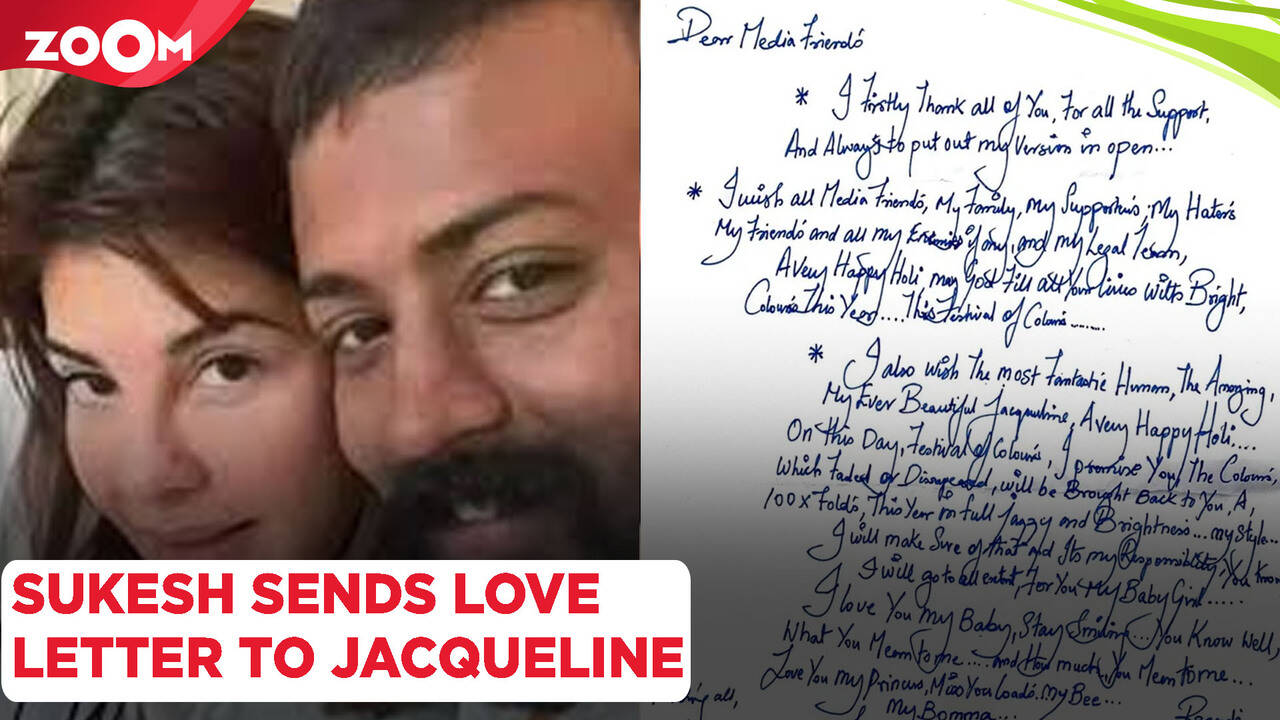 ZOOM
Dear Media Friends
* I Firstly Thank all of You, For all the Support,
And Always to put out my Version in open...
* I wish all Media Friends, My Family, My Supporters, My Haters
My Friends and all my Enemies if any, and my Legal Team,
A Very Happy Holi may God Fill all Your Lives With Bright,
Colours This Year.... This Festival of Colours.......
* I also wish The most Fantastic Human, The Amazing,
My Ever Beautiful Jacqueline, A Very Happy Holi....
On this Day, Festival of Colours, I promise You, The Colours,
Which Faded or Disapeared, will be Brought Back to You, A,
100 x Folds, This Year in full Jazzy and Brightness... my style...
I will make Sure of that and Its my Responsibility, You Know
I will go to all extent, For You My Baby Girl.....
I love You My Baby, Stay Smiling... You Know Well,
What You Mean to me.... and How much You Mean to me...
Love You my Princess, Miss You Loads. my Bee...
My Bomma...
all,
SUKESH SENDS LOVE
LETTER TO JACQUELINE